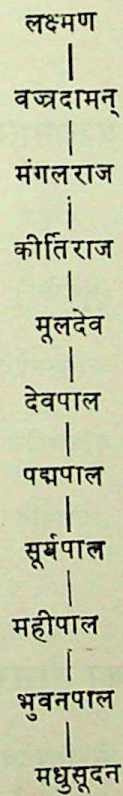 लक्ष्मण
वज्रदामन्
मंगलराज
कीर्तिराज
मूलदेव
देवपाल
पद्मपाल
सूर्यपाल
महीपाल
भुवनपाल
मधुसूदन